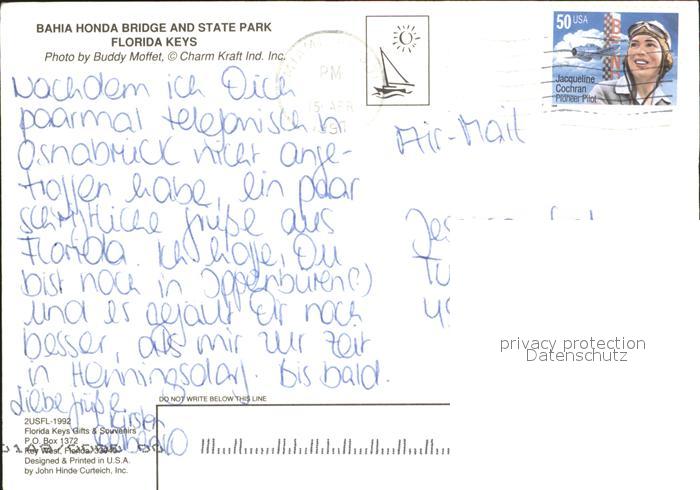 BAHIA HONDA BRIDGE AND STATE PARK
FLORIDA KEYS
Photo by Buddy Moffet, © Charm Kraft Ind. Inc.
Nachdem ich Dich
paarmal telefonisch in
Osnabrück nicht ange-
troffen habe, ein paar
schriftliche Grüße aus
Florida. Ich hoffe, Du
bist noch in
und es gefällt Dir noch
besser, als mir zur Zeit
in Henningsdorf. Bis bald.
Liebe Grüße
Kirsten
PM
15 APR
50 USA
Jacqueline
Cochran
Pioneer Pilot
Air-Mail
privacy protection
Datenschutz
DO NOT WRITE BELOW THIS LINE
2USFL-1992
Florida Keys Gifts & Souvenirs
P.O. Box 1372
Key West, Florida
Designed & Printed in U.S.A.
by John Hinde Curteich, Inc.